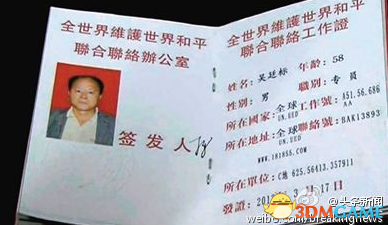 全世界維護世界和平
聯合聯絡辦公室
签发人
全世界維護世界和平
聯合聯絡工作證
姓名:吴廷标 年龄:58
性别:男 職别:专员
所在國家:全球工作號:651.56.686
UN.UEO AA
所在地址:全球聯絡號:BAK13893
UN.UEO
WWW.181855.COM
所在單位:(池 625.56413.357911
發證:201 3 17日
@头条新闻
weibo.com/breakingnews
3DMGAME